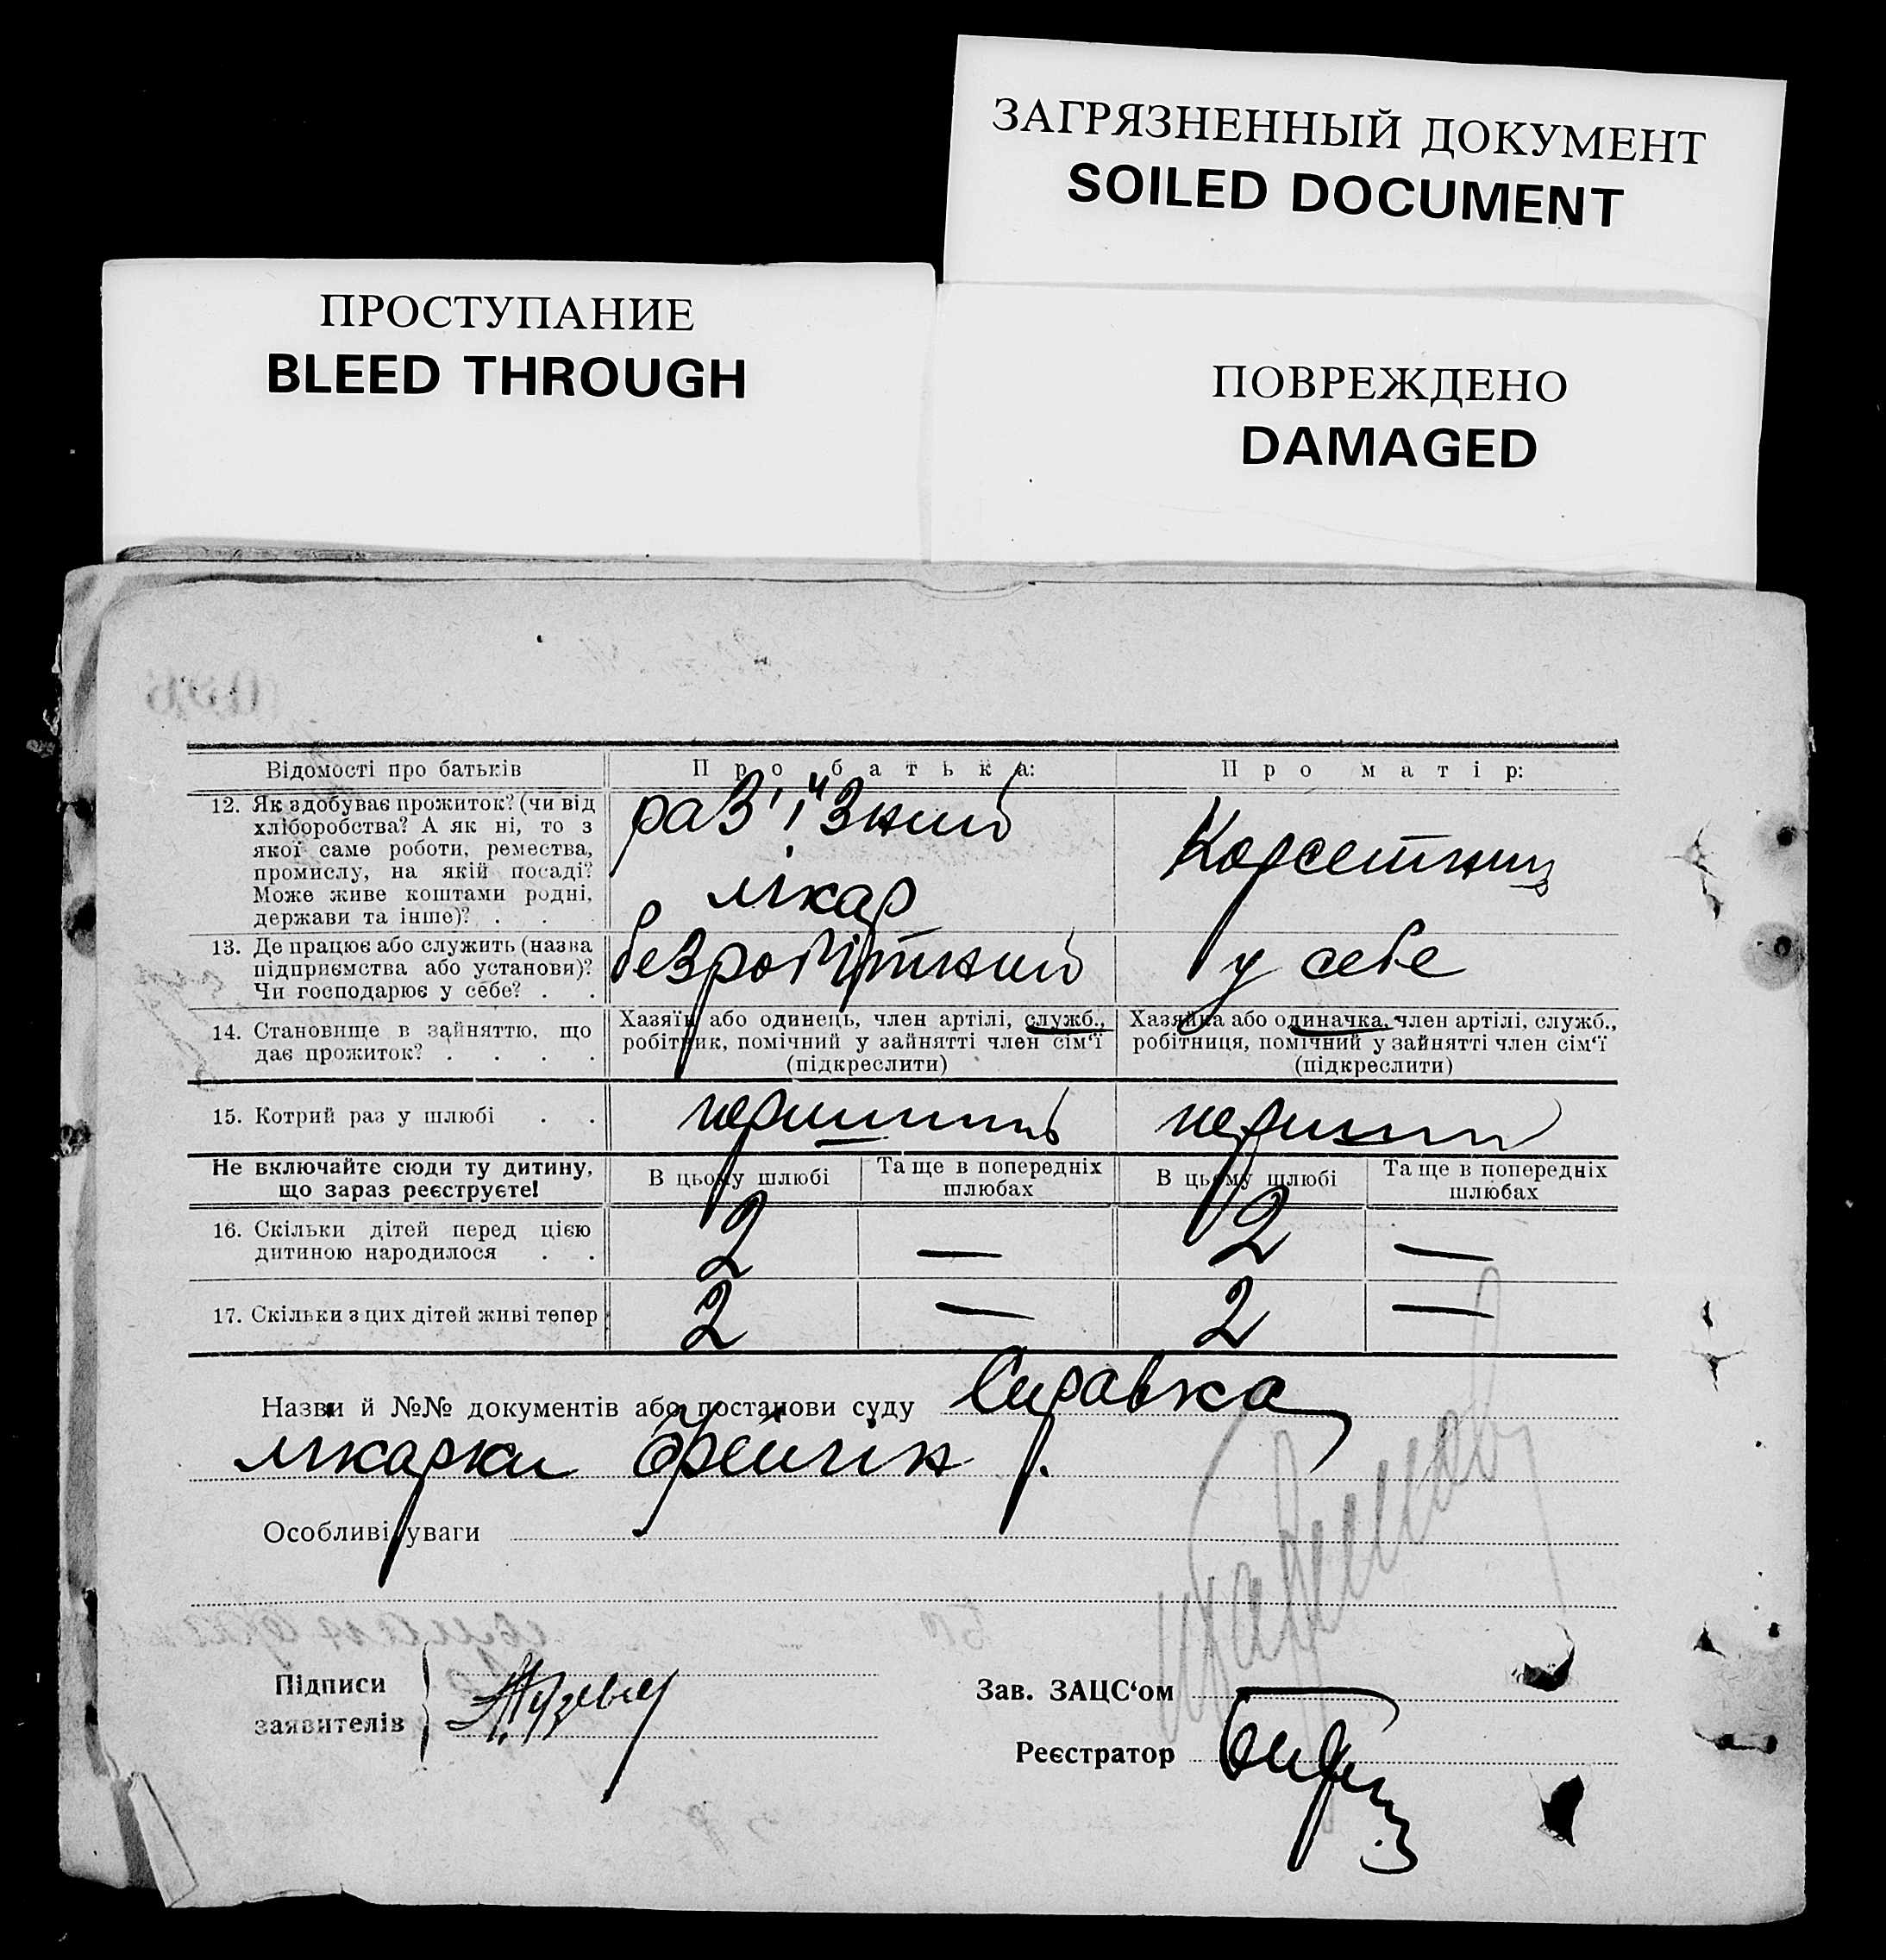 ЗАГРЯЗНЕННЫЙ ДОКУМЕНТ
SOILED DOCUMENT
ПРОСТУПАНИЕ
BLEED THROUGH
ПОВРЕЖДЕНО
DAMAGED
Відомості про батьків
Про батька:
Про матір:
12. Як здобуває прожиток? (чи від
хліборобства? А як ні, то з
якої саме роботи, ремества,
промислу, на якій посаді?
Може живе коштами родні,
держави та інше)? . . .
раз'їзний
лікар
Корсетниц
13. Де працює або служить (назва
підприємства або установи)?
Чи господарює у себе? . .
безробітний
у себе
14. Становище в зайняттю, що
дає прожиток? . . . .
Хазяїн або одинець, член артілі, служб.,
робітник, помічний у зайнятті член сім‘ї
(підкреслити)
Хазяйка або одиначка, член артілі, служб.,
робітниця, помічний у зайнятті член сім‘ї
(підкреслити)
15. Котрий раз у шлюбі . .
Не включайте сюди ту дитину,
що зараз реєструєте!
В цьому шлюбі
Та ще в попередніх
шлюбах
В цьому шлюбі
Та ще в попередніх
шлюбах
16. Скільки дітей перед цією
дитиною народилося . .
2 — 2 —
17. Скільки з цих дітей живі тепер
2 — 2 —
Назви й №№ документів або постанови суду Справка
лікарки
Особливі уваги
Підписи
заявителів
Зав. ЗАЦС‘ом
Реєстратор